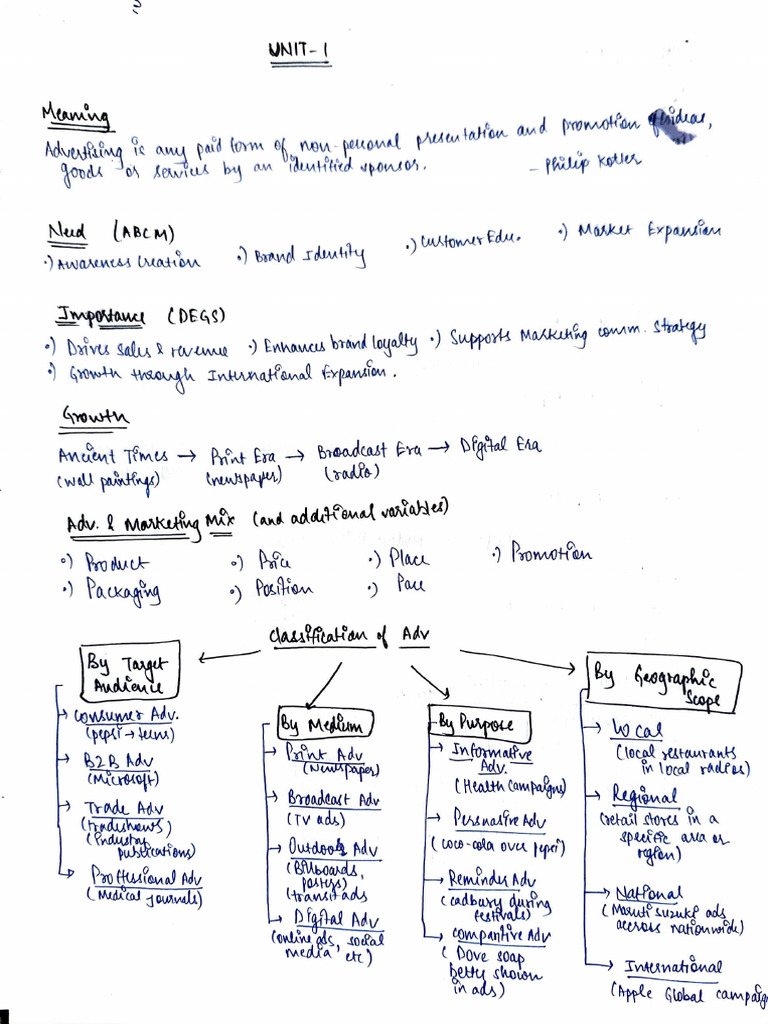 UNIT-1
Meaning
Advertising is any paid form of non-personal presentation and promotion of ideas,
goods or services by an identified sponsor. - Philip Kotler
Need (ABCM)
•) Awareness Creation •) Brand Identity •) Customer Edu. •) Market Expansion
Importance (DEGS)
•) Drives sales & revenue •) Enhances brand loyalty •) Supports Marketing comm. strategy
•) Growth through International Expansion.
Growth
Ancient Times → Print Era → Broadcast Era → Digital Era
(wall paintings) (newspaper) (radio)
Adv. & Marketing Mix (and additional variables)
•) Product •) Price •) Place •) Promotion
•) Packaging •) Position •) Pace
Classification of Adv
By Target
Audience
Consumer Adv.
(pepsi → teens)
B2B Adv
(Microsoft)
Trade Adv
(tradeshows)
(industry
publications)
Proffessional Adv
(Medical journals)
By Medium
Print Adv
(Newspaper)
Broadcast Adv
(TV ads)
Outdoor Adv
(Billboards,
posters)
transit ads
Digital Adv
(online ads, social
media, etc)
By Purpose
Informative
Adv.
(Health campaigns)
Persuasive Adv
(coco-cola over pepsi)
Reminder Adv
(cadbury during
festivals)
Comparitive Adv
(Dove soap
betty shown
in ads)
By Geographic
Scope
Local
(local restaurants
in local radios)
Regional
(retail stores in a
specific area or
region)
National
(Maruti suzuki ads
accross nationwide)
International
(Apple Global campaig